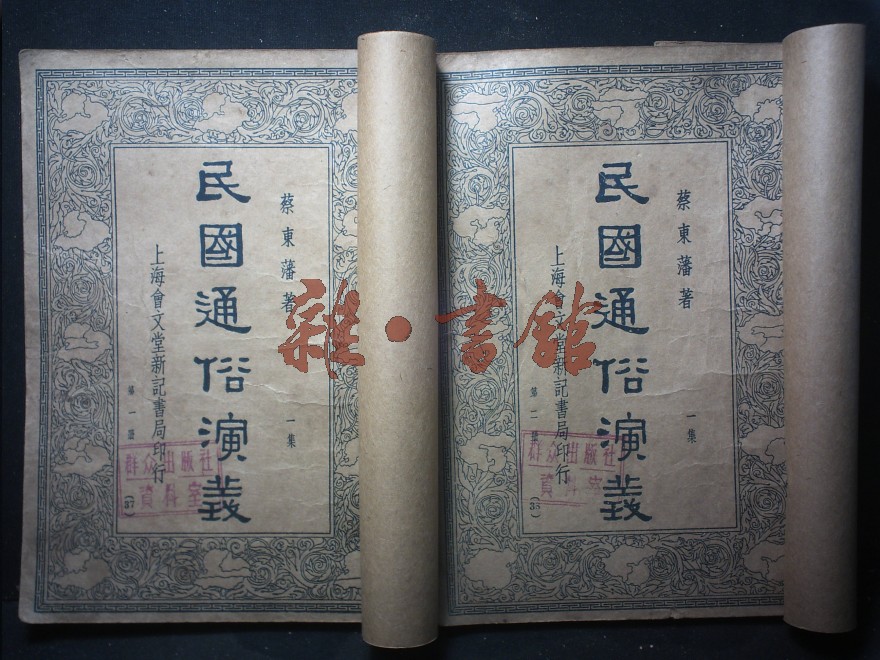 蔡東藩著
一集
民國通俗演義
上海會文堂新記書局印行
第一冊
(37)
群众出版社
資料室
蔡東藩著
一集
民國通俗演義
上海會文堂新記書局印行
第二冊
群众出版社
資料室
雜·書館